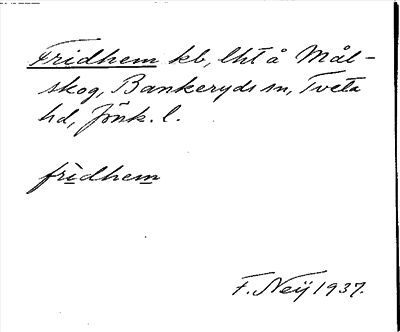 Fridhem kb, lht å Mål-
skog, Bankeryds sn, Tveta
hd, Jönk. l.
fridhem
F. Neij 1937.